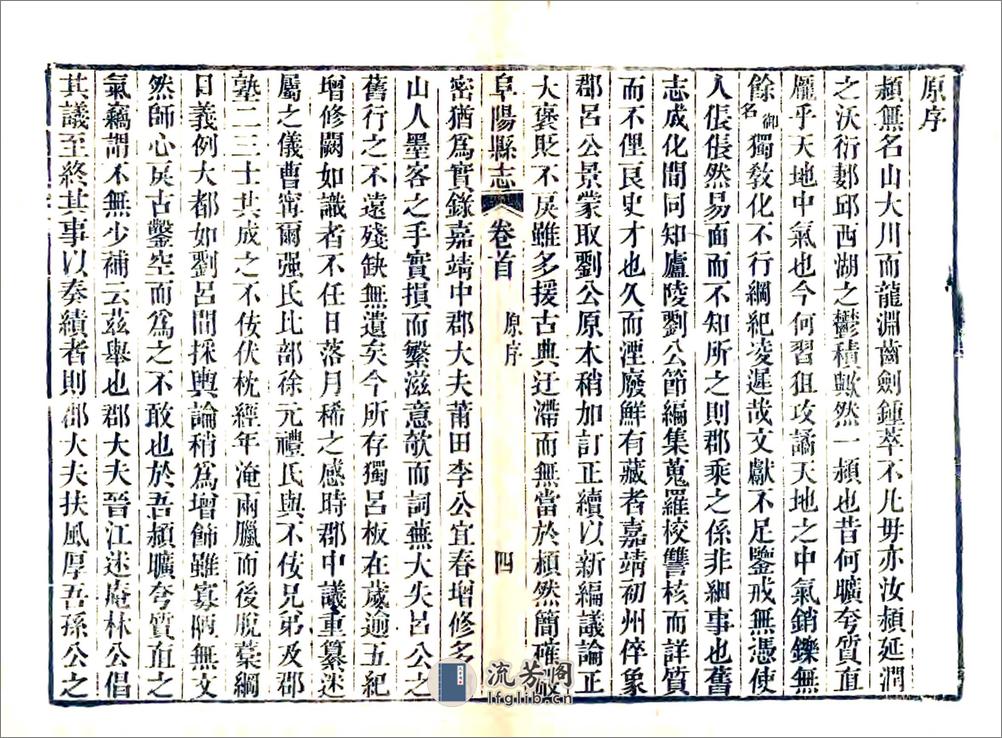 原序
潁無名山大川而龍淵齒劍鍾萃不凡毋亦汝潁延潤
之沃衍鄚邱西湖之鬱積歟然一潁也昔何曠夸質直
龐乎天地中氣也今何習狙攻譎天地之中氣銷鑠無
餘御名獨敎化不行綱紀凌遲哉文獻不足鑒戒無憑使
人倀倀然易面而不知所之則郡乘之係非細事也舊
志成化間同知廬陵劉公節編集蒐羅校讐核而詳質
而不俚良史才也久而湮廢鮮有藏者嘉靖初州倅象
郡呂公景蒙取劉公原本稍加訂正續以新編議論正
大褒貶不戾雖多援古典迂滯而無當於潁然簡確嚴
阜陽縣志 卷首 原序 四
密猶爲實錄嘉靖中郡大夫莆田李公宜春增修多出
山人墨客之手實損而繁滋意欹而詞蕪大失呂公之
舊行之不遠殘缺無遺矣今所存獨呂板在歲逾五紀
增修闕如識者不任日落月稀之感時郡中議重纂迷
屬之儀曹甯爾强氏比部徐元禮氏與不佞兄弟及郡
塾二三士共成之不佞伏枕經年淹兩臘而後脫藁綱
目義例大都如劉呂間採輿論稍爲增飾雖寡陋無文
然師心戾古鑿空而爲之不敢也於吾潁曠夸質直之
氣竊謂不無少補云茲舉也郡大夫晉江迷庵林公倡
其議至終其事以奏績者則郡大夫扶風厚吾孫公之
流芳阁
lfglib.cn